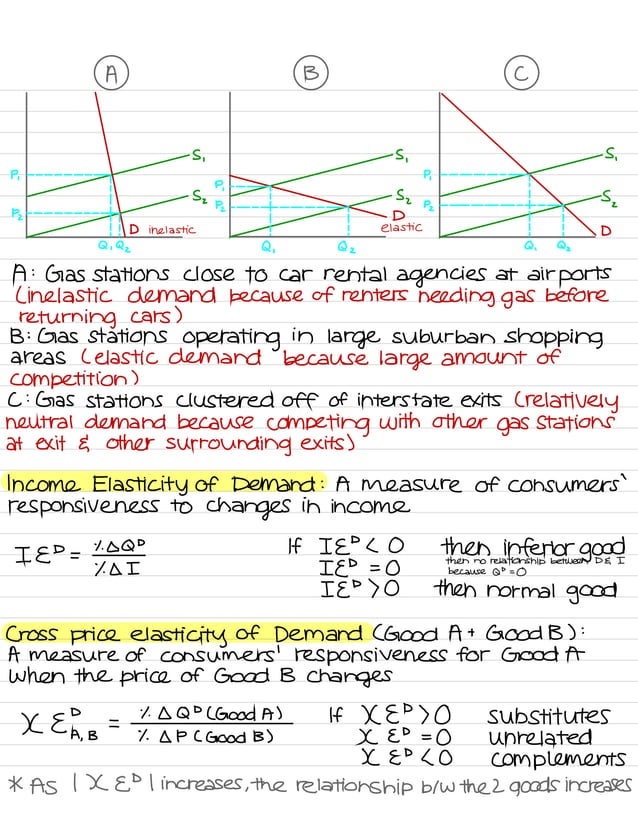 A B C
S₁ S₁ S₁
P₁ P₁ P₁
S₂ S₂ S₂
P₂ P₂ P₂
D inelastic D elastic D
Q₁ Q₂ Q₁ Q₂ Q₁ Q₂
A: Gas stations close to car rental agencies at airports
(inelastic demand because of renters needing gas before
returning cars)
B: Gas stations operating in large suburban shopping
areas (elastic demand because large amount of
competition)
C: Gas stations clustered off of interstate exits (relatively
neutral demand because competing with other gas stations
at exit & other surrounding exits)
Income Elasticity of Demand: A measure of consumers'
responsiveness to changes in income
IƐᴰ = %ΔQᴰ / %ΔI
If IƐᴰ < 0 then inferior good
IƐᴰ = 0 then no relationship between D & I
because Qᴰ = 0
IƐᴰ > 0 then normal good
Cross price elasticity of Demand (Good A + Good B):
A measure of consumers' responsiveness for Good A
when the price of Good B changes
XƐᴰ A,B = % ΔQᴰ (Good A) / % ΔP (Good B)
If XƐᴰ > 0 substitutes
XƐᴰ = 0 unrelated
XƐᴰ < 0 complements
* As | XƐᴰ | increases, the relationship b/w the 2 goods increases